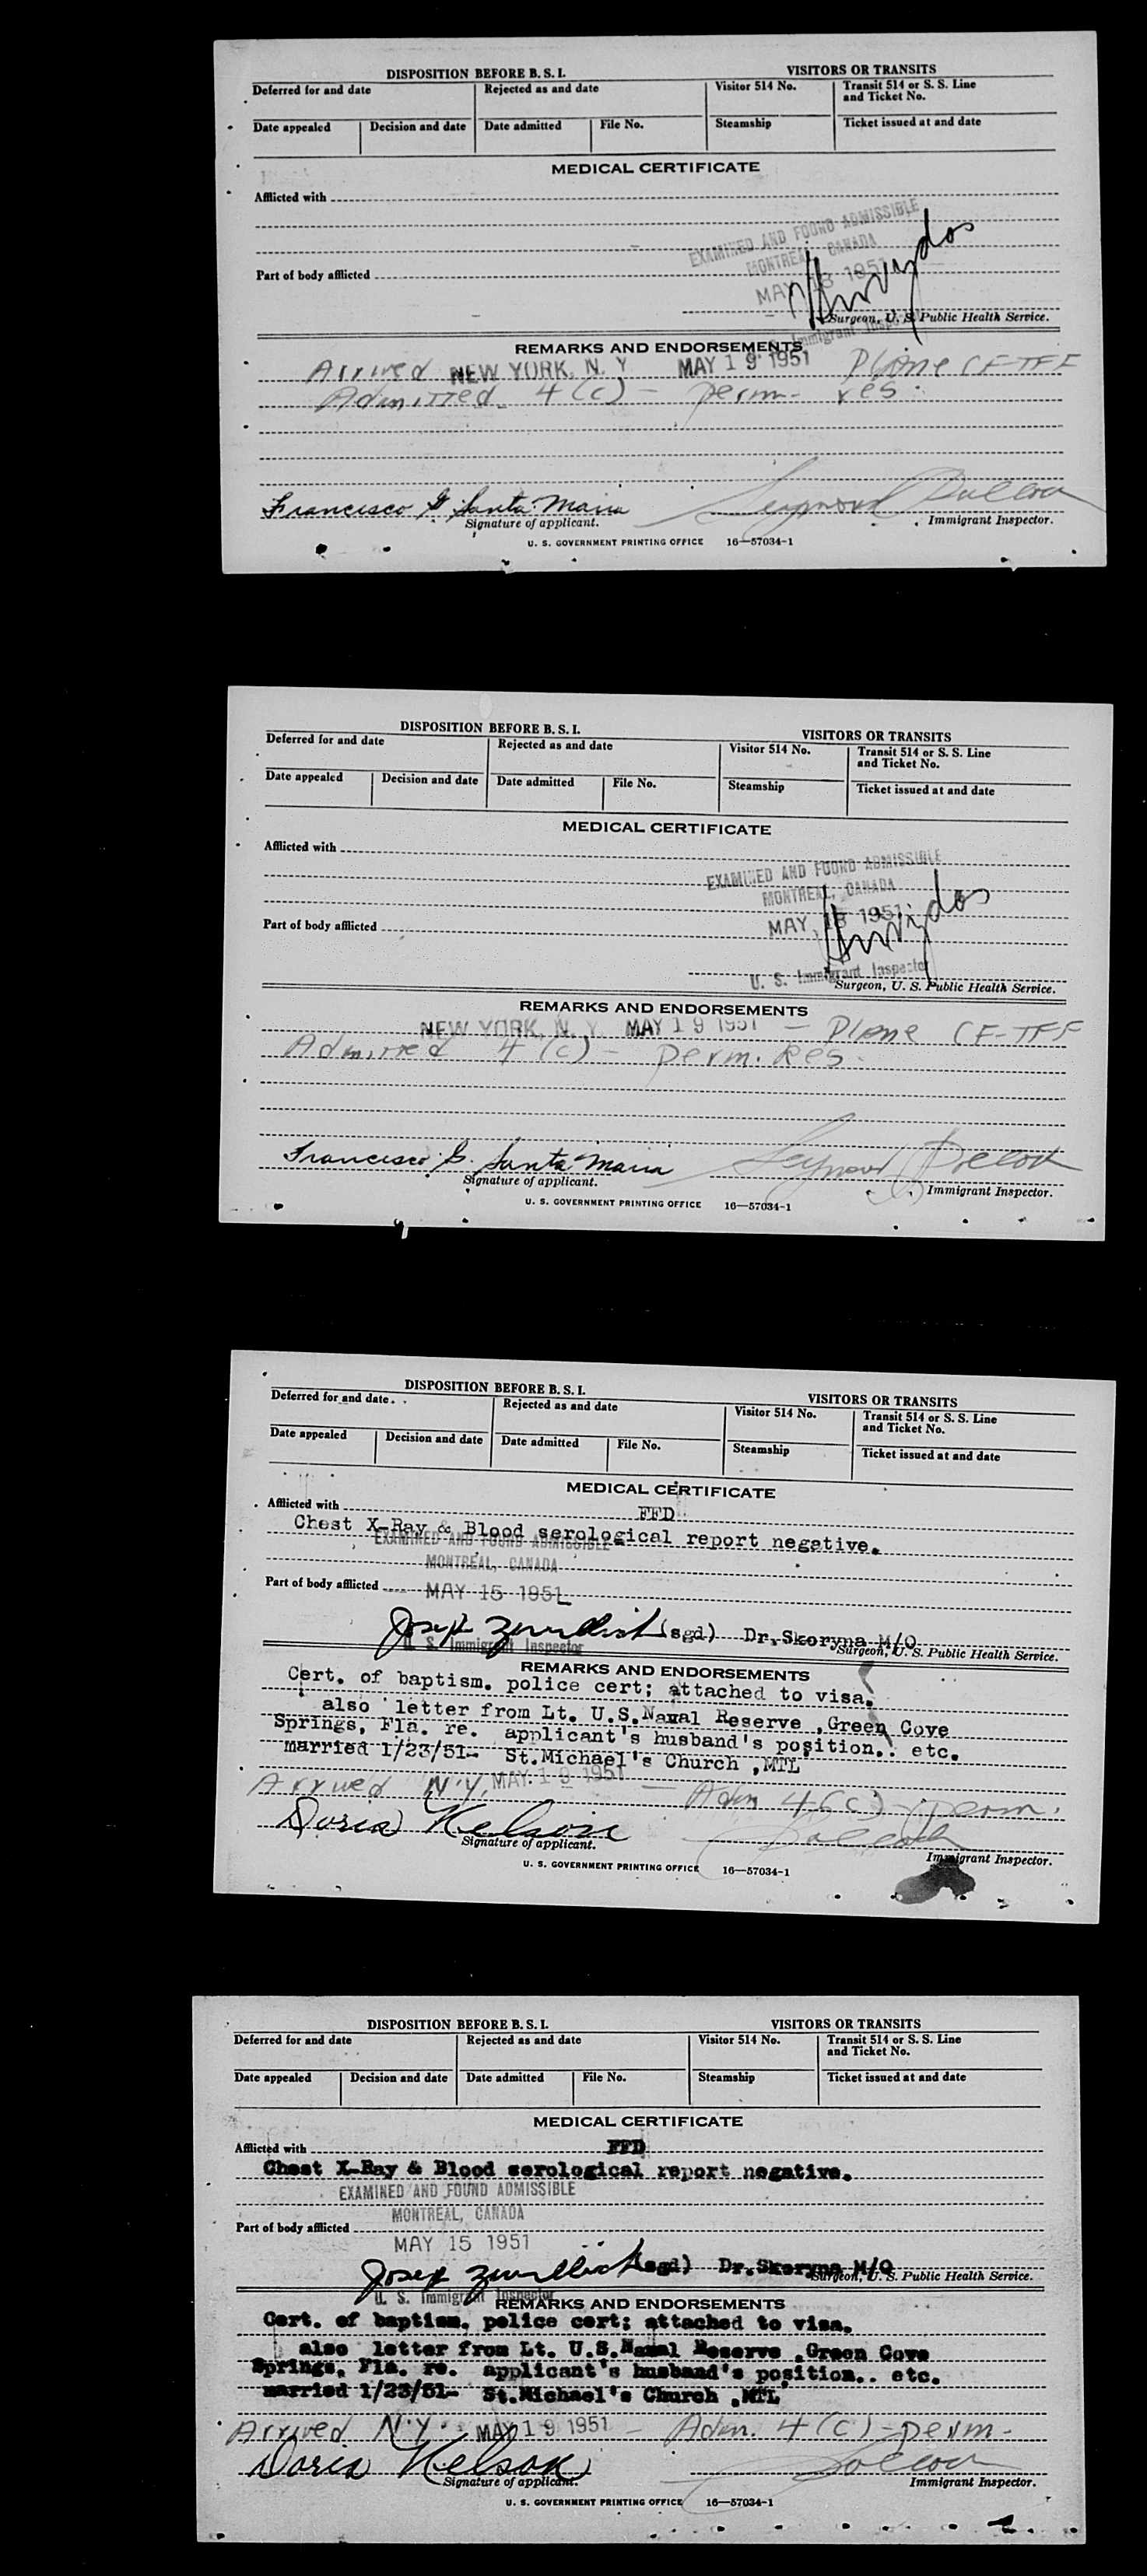 DISPOSITION BEFORE B. S. I. VISITORS OR TRANSITS
Deferred for and date Rejected as and date Visitor 514 No. Transit 514 or S. S. Line and Ticket No.
Date appealed Decision and date Date admitted File No. Steamship Ticket issued at and date
MEDICAL CERTIFICATE
Afflicted with
EXAMINED AND FOUND ADMISSIBLE
MONTREAL, CANADA
Part of body afflicted
MAY 18 1951
Surgeon, U. S. Public Health Service.
Immigrant
REMARKS AND ENDORSEMENTS
Arrived NEW YORK, N. Y. MAY 19 1951 Plane CF-TFF
Admitted 4 (c) - perm. res.
Francisco G. Santa Maria Seymour
Signature of applicant. Immigrant Inspector.
U. S. GOVERNMENT PRINTING OFFICE 16—57034-1
DISPOSITION BEFORE B. S. I. VISITORS OR TRANSITS
Deferred for and date Rejected as and date Visitor 514 No. Transit 514 or S. S. Line and Ticket No.
Date appealed Decision and date Date admitted File No. Steamship Ticket issued at and date
MEDICAL CERTIFICATE
Afflicted with
EXAMINED AND FOUND ADMISSIBLE
MONTREAL, CANADA
Part of body afflicted
MAY 18 1951
U. S. Immigrant Inspector
Surgeon, U. S. Public Health Service.
REMARKS AND ENDORSEMENTS
NEW YORK, N. Y. MAY 19 1951 — Plane CF-TFF
Admitted 4 (c) - perm. Res.
Francisco G. Santa Maria Seymour
Signature of applicant. Immigrant Inspector.
U. S. GOVERNMENT PRINTING OFFICE 16—57034-1
DISPOSITION BEFORE B. S. I. VISITORS OR TRANSITS
Deferred for and date Rejected as and date Visitor 514 No. Transit 514 or S. S. Line and Ticket No.
Date appealed Decision and date Date admitted File No. Steamship Ticket issued at and date
MEDICAL CERTIFICATE
Afflicted with FFD
Chest X-Ray & Blood serological report negative.
EXAMINED AND FOUND ADMISSIBLE
MONTREAL, CANADA
Part of body afflicted MAY 15 1951
Josep (sgd) Dr.Skoryna M/O
U. S. Immigrant Inspector Surgeon, U. S. Public Health Service.
REMARKS AND ENDORSEMENTS
Cert. of baptism. police cert; attached to visa.
also letter from Lt. U.S.Naval Reserve ,Green Cove
Springs, Fla. re. applicant's husband's position.. etc.
married 1/23/51- St.Michael's Church ,MTL
Arrived N.Y. MAY 19 1951 — Adm 4 (c) - perm.
Doris Nelson
Signature of applicant. Immigrant Inspector.
U. S. GOVERNMENT PRINTING OFFICE 16—57034-1
DISPOSITION BEFORE B. S. I. VISITORS OR TRANSITS
Deferred for and date Rejected as and date Visitor 514 No. Transit 514 or S. S. Line and Ticket No.
Date appealed Decision and date Date admitted File No. Steamship Ticket issued at and date
MEDICAL CERTIFICATE
Afflicted with FFD
Chest X-Ray & Blood serological report negative.
EXAMINED AND FOUND ADMISSIBLE
MONTREAL, CANADA
Part of body afflicted
MAY 15 1951
Josep (sgd) Dr.Skoryna M/O
Surgeon, U. S. Public Health Service.
U. S. Immigrant Inspector
REMARKS AND ENDORSEMENTS
Cert. of baptism. police cert; attached to visa.
also letter from Lt. U.S.Naval Reserve ,Green Cove
Springs, Fla. re. applicant's husband's position.. etc.
married 1/23/51- St.Michael's Church ,MTL
Arrived N.Y. MAY 19 1951 — Adm. 4 (c) - perm -
Doris Nelson
Signature of applicant. Immigrant Inspector.
U. S. GOVERNMENT PRINTING OFFICE 16—57034-1